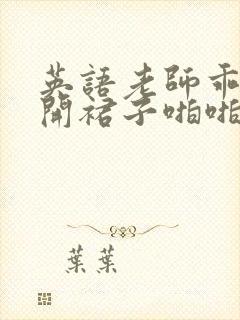 英語老師乖
開裙子啪啪
葉葉